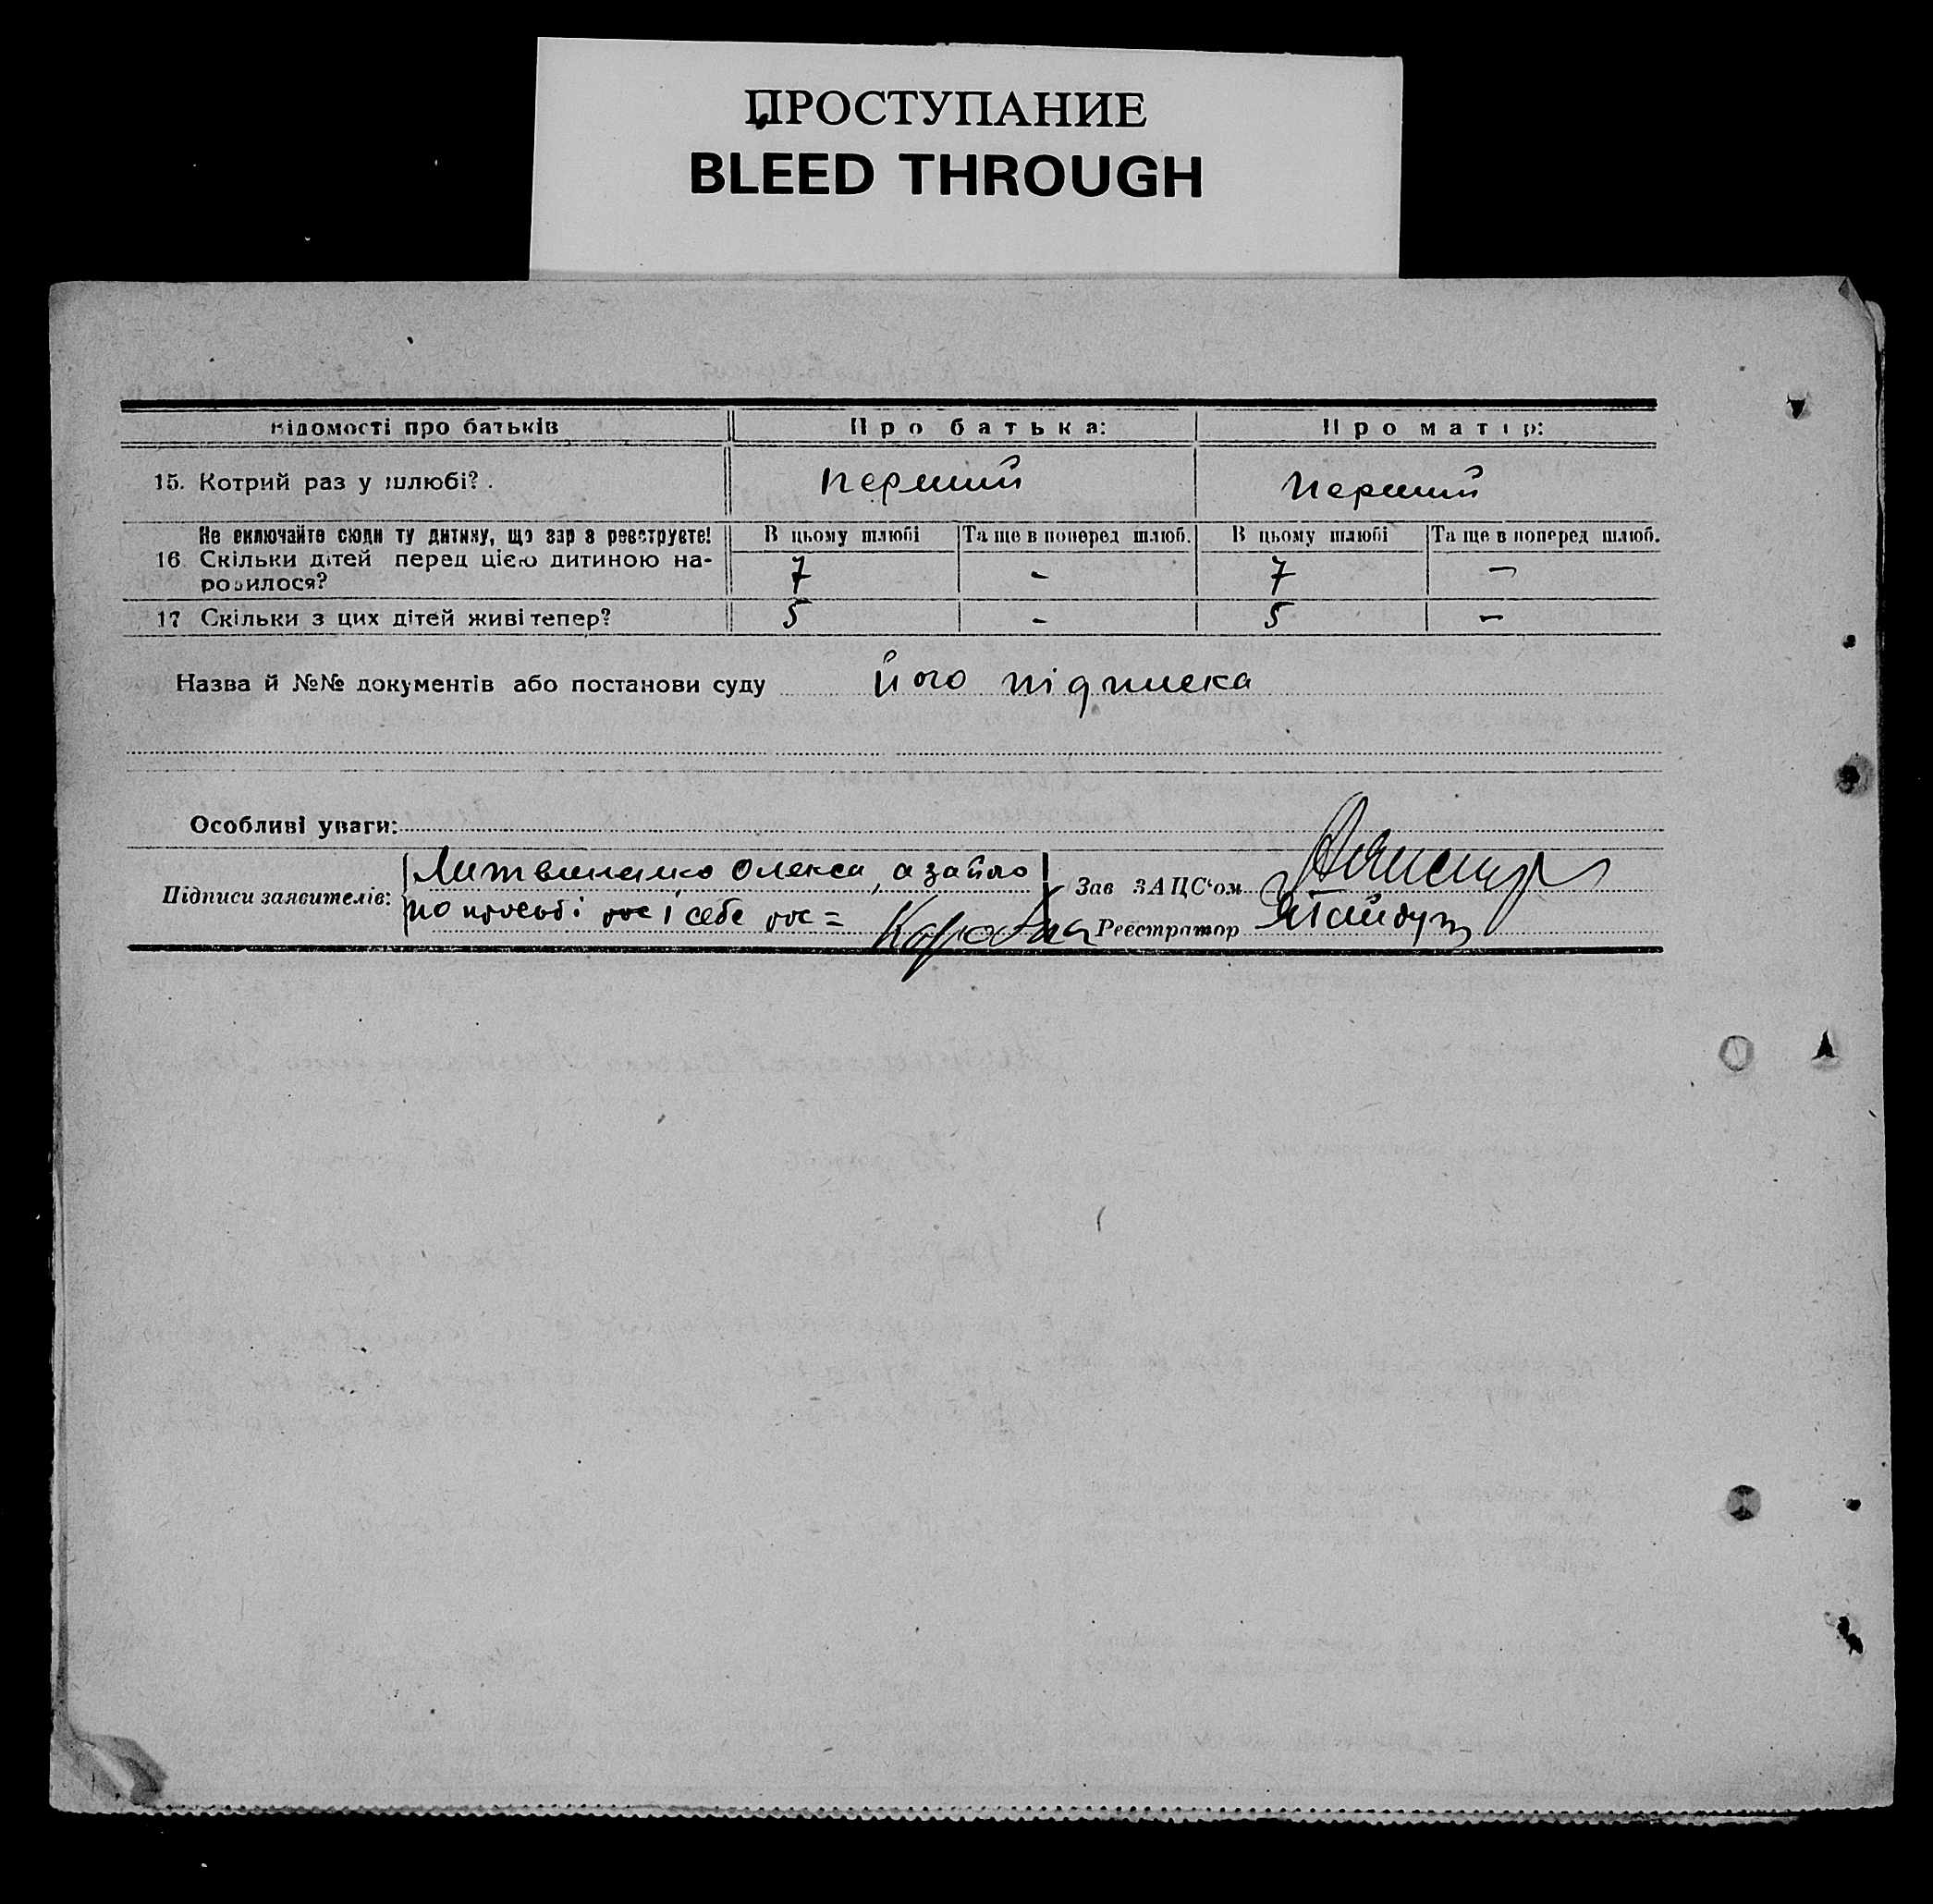 ПРОСТУПАНИЕ
BLEED THROUGH
Відомості про батьків Про батька: Про матір:
15. Котрий раз у шлюбі? . перший перший
Не включайте сюди ту дитину, що зараз реєструєте! В цьому шлюбі Та ще в поперед шлюб. В цьому шлюбі Та ще в поперед шлюб.
16 Скільки дітей перед цією дитиною на-
родилося? 7 - 7 -
17 Скільки з цих дітей живі тепер? 5 - 5 -
Назва й №№ документів або постанови суду його підписка
Особливі уваги:
Литвиненко Олекса, а за його
Підписи заявителів: Зав ЗАЦС'ом
по просьбі і себе
Реєстратор